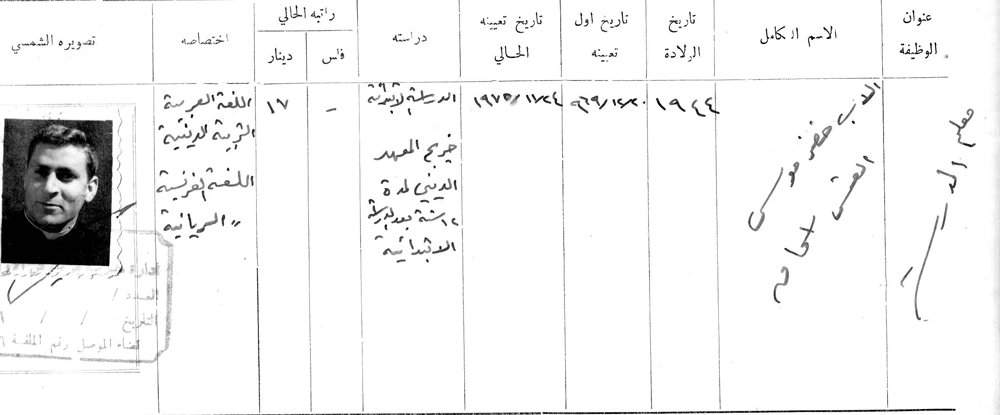 عنوان
الوظيفة
الاسم الكامل
تاريخ
الولادة
تاريخ اول
تعيينه
تاريخ تعيينه
الحالي
دراسته
راتبه الحالي
فلس
دينار
اختصاصه
تصويره الشمسي
معلم
الاب خضر موسى
القس
١٩٤٤
٩٦٩/١٢/٢٠
١٩٧٥/١١/٢٤
الدراسة الابتدائية
خريج المعهد
الديني لمدة
١٢ سنة بعد الدراسة
الابتدائية
-
١٧
اللغة العربية
التربية الدينية
اللغة الفرنسية
〃 السريانية
العدد /
التاريخ / /
قضاء الموصل رقم الملفة